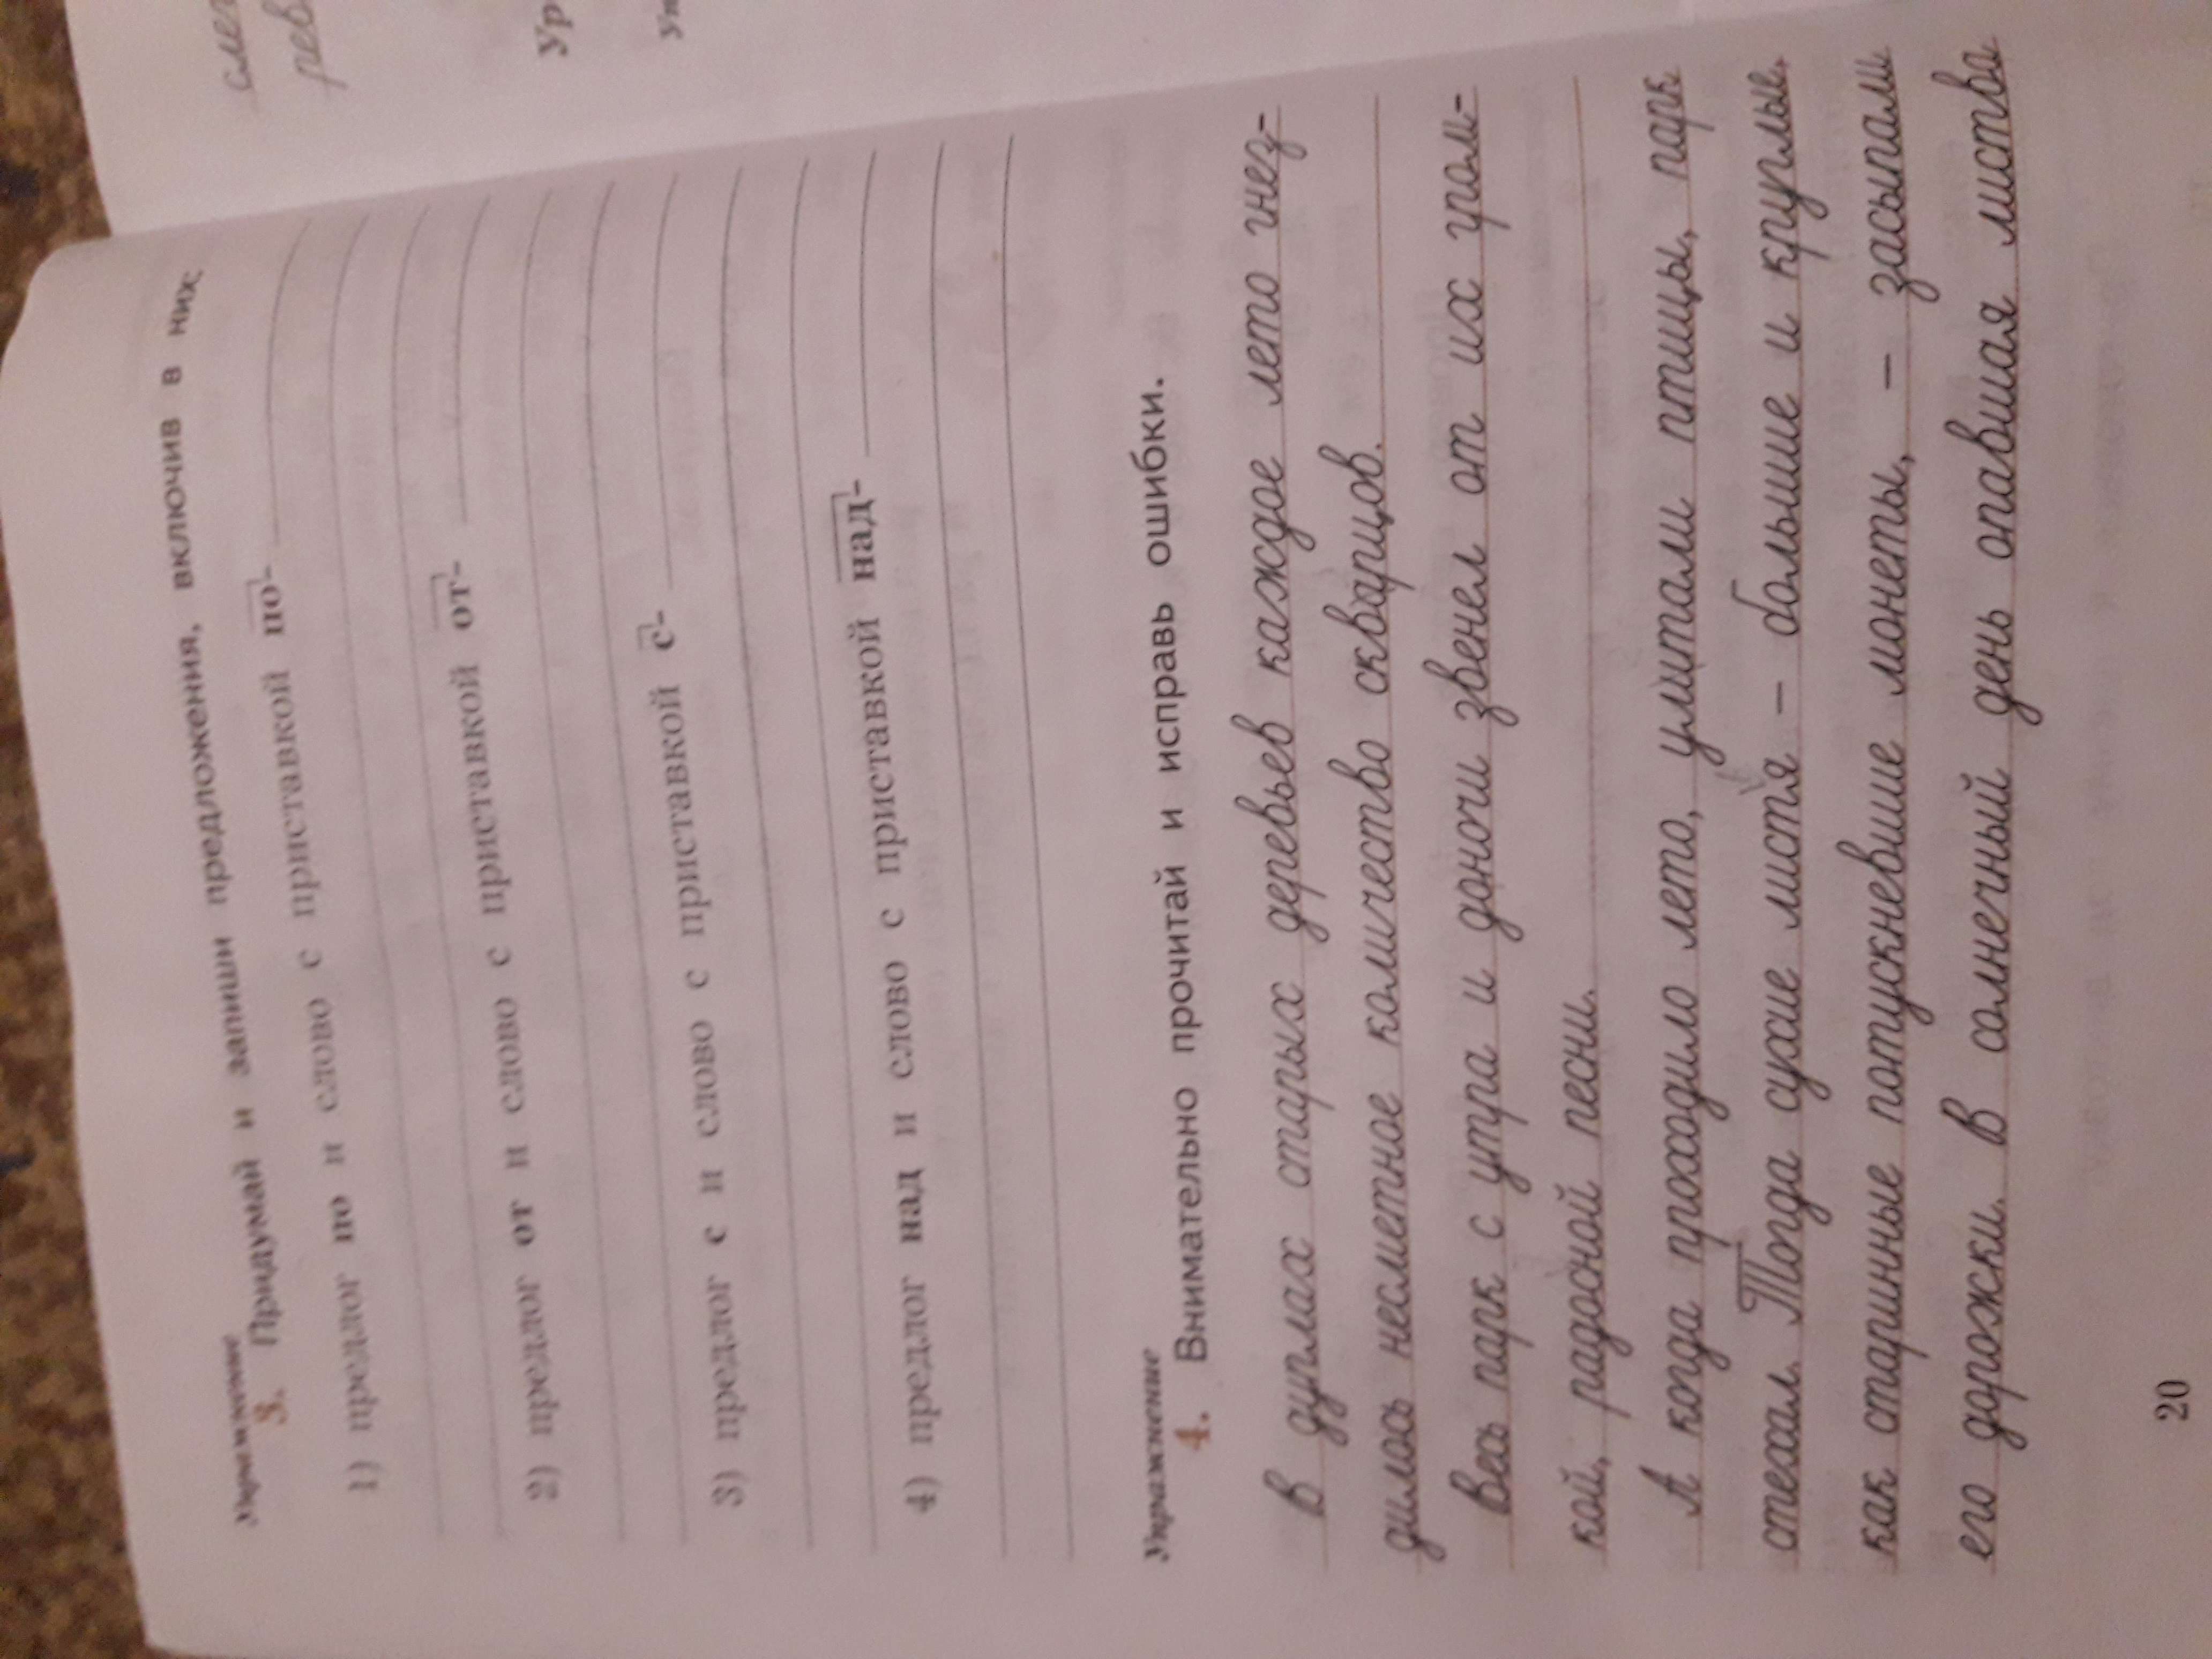 Упражнение
3. Придумай и запиши предложения, включив в них:
1) предлог по и слово с приставкой по-
2) предлог от и слово с приставкой от-
3) предлог с и слово с приставкой с-
4) предлог над и слово с приставкой над-
Упражнение
4. Внимательно прочитай и исправь ошибки.
В дуплах старых деревьев каждое лето гнез-
дилось несметное количество скварцов.
Весь парк с утра и доночи звенел от их гром-
кой, радосной песни.
А когда проходило лето, улитали птицы, парк
стехал. Тогда сухие листя – большие и круглые,
как старинные потускневшие монеты, – засыпали
его дорожки. В солнечный день опавшая листва
20
Ур
Уп